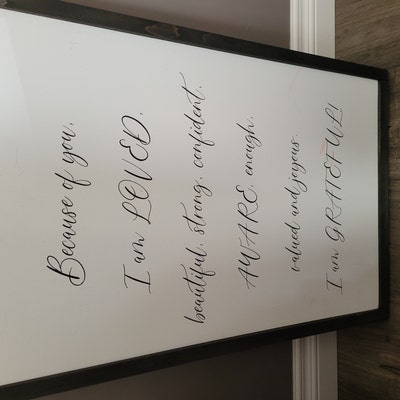 Because of you,
I am LOVED,
beautiful, strong, confident,
AWARE, enough,
valued and joyous.
I am GRATEFUL!